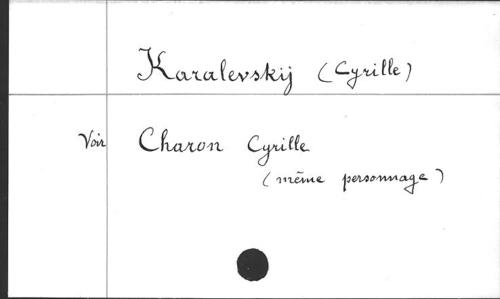 Karalevskij (Cyrille)
Voir Charon Cyrille
(même personnage)